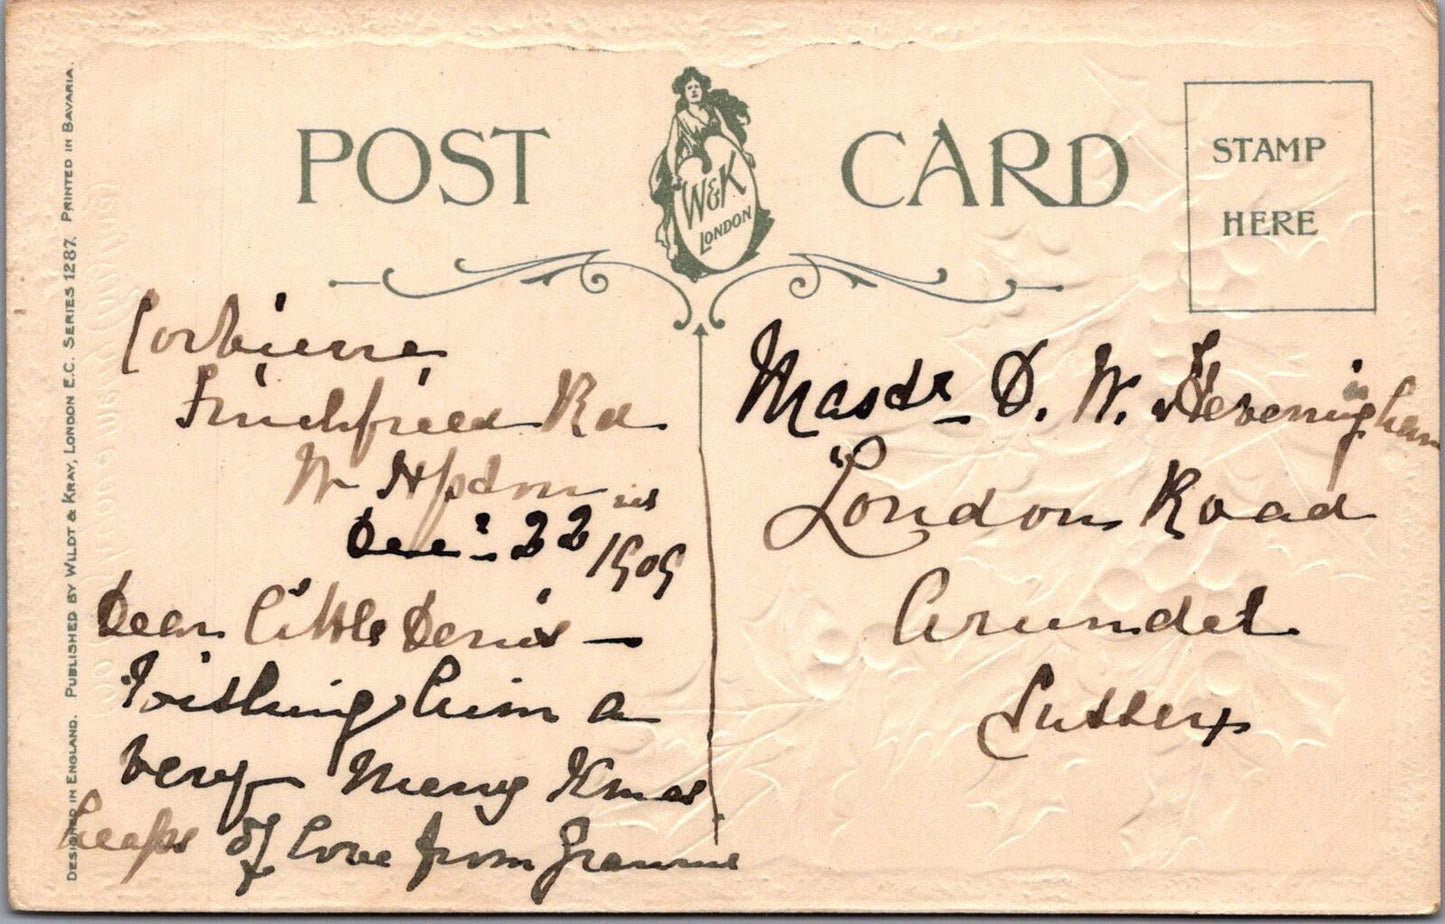 POST CARD
W&K
LONDON
STAMP
HERE
DESIGNED IN ENGLAND. PUBLISHED BY WILDT & KRAY, LONDON E.C. SERIES 1287. PRINTED IN BAVARIA.
Corbierre
Rd
W Hpdon
Dec: 22 1909
Dear Little Denis —
Wishing him a
very Merry Xmas
heaps of love from Grannie
Mastr D. W. Heveningham
London Road
Arundel
Sussex